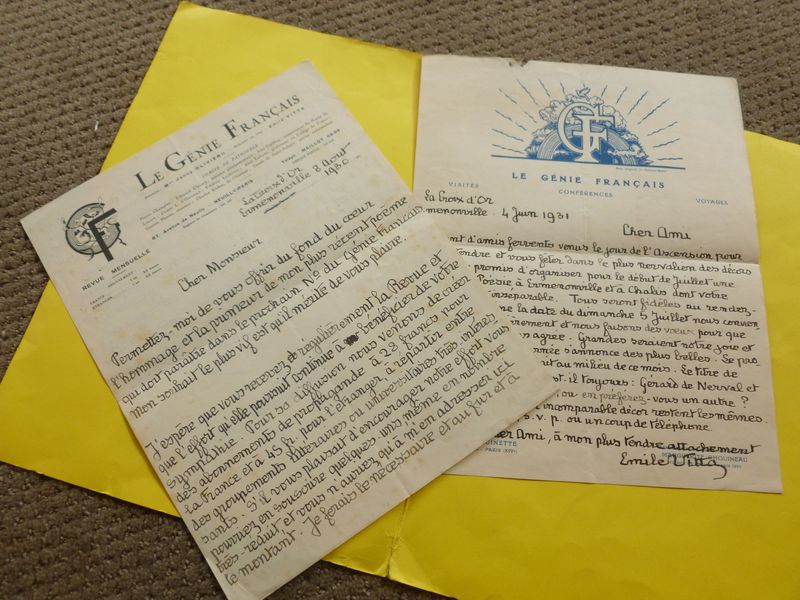 LE GÉNIE FRANÇAIS
REVUE MENSUELLE
La Croix d'Or
Ermenonville 8 Août
1930
Cher Monsieur
Permettez-moi de vous offrir du fond du cœur
l'hommage et la primeur de mon plus récent poème
qui doit paraître dans le prochain No du Génie Français
mon souhait le plus vif est qu'il mérite de vous plaire.
J'espère que vous recevez régulièrement la Revue et
que l'effort qu'elle poursuit continue à bénéficier de votre
sympathie. Pour sa diffusion nous venons de créer
des abonnements de propagande à 28 francs pour
la France et à 45 fr. pour l'étranger, à répartir entre
des groupements littéraires ou universitaires très intéres
sants. S'il vous plaisait d'encourager notre effort vous
pourriez en souscrire quelques uns même en nombre
très-réduit et vous n'auriez qu'à m'en adresser ici
le montant. Je ferais le nécessaire et au fur et à
GF
LE GÉNIE FRANÇAIS
VISITES CONFÉRENCES VOYAGES
La Croix d'Or
menonville 4 Juin 1931
Cher Ami
nt d'amis fervents venus le jour de l'Ascension pour
endre et vous fêter dans le plus nervalien des décors
promis d'organiser pour le début de Juillet une
Poésie à Ermenonville et à Châlis dont votre
inséparable. Tous seront fidèles au rendez-
me la date du dimanche 5 Juillet nous conven
irement et nous faisons des vœux pour que
agrée. Grandes seraient notre joie et
née s'annonce des plus belles. Se pro-
ait au milieu de ce mois. Le titre de
st il toujours : Gérard de Nerval et
ou en préférez-vous un autre ?
incomparable décor restent les mêmes.
s. v. p. ou un coup de téléphone.
er Ami, à mon plus tendre attachement
Emile Vitta
INETTE
PARIS (XIVe)
CHOUINEAU